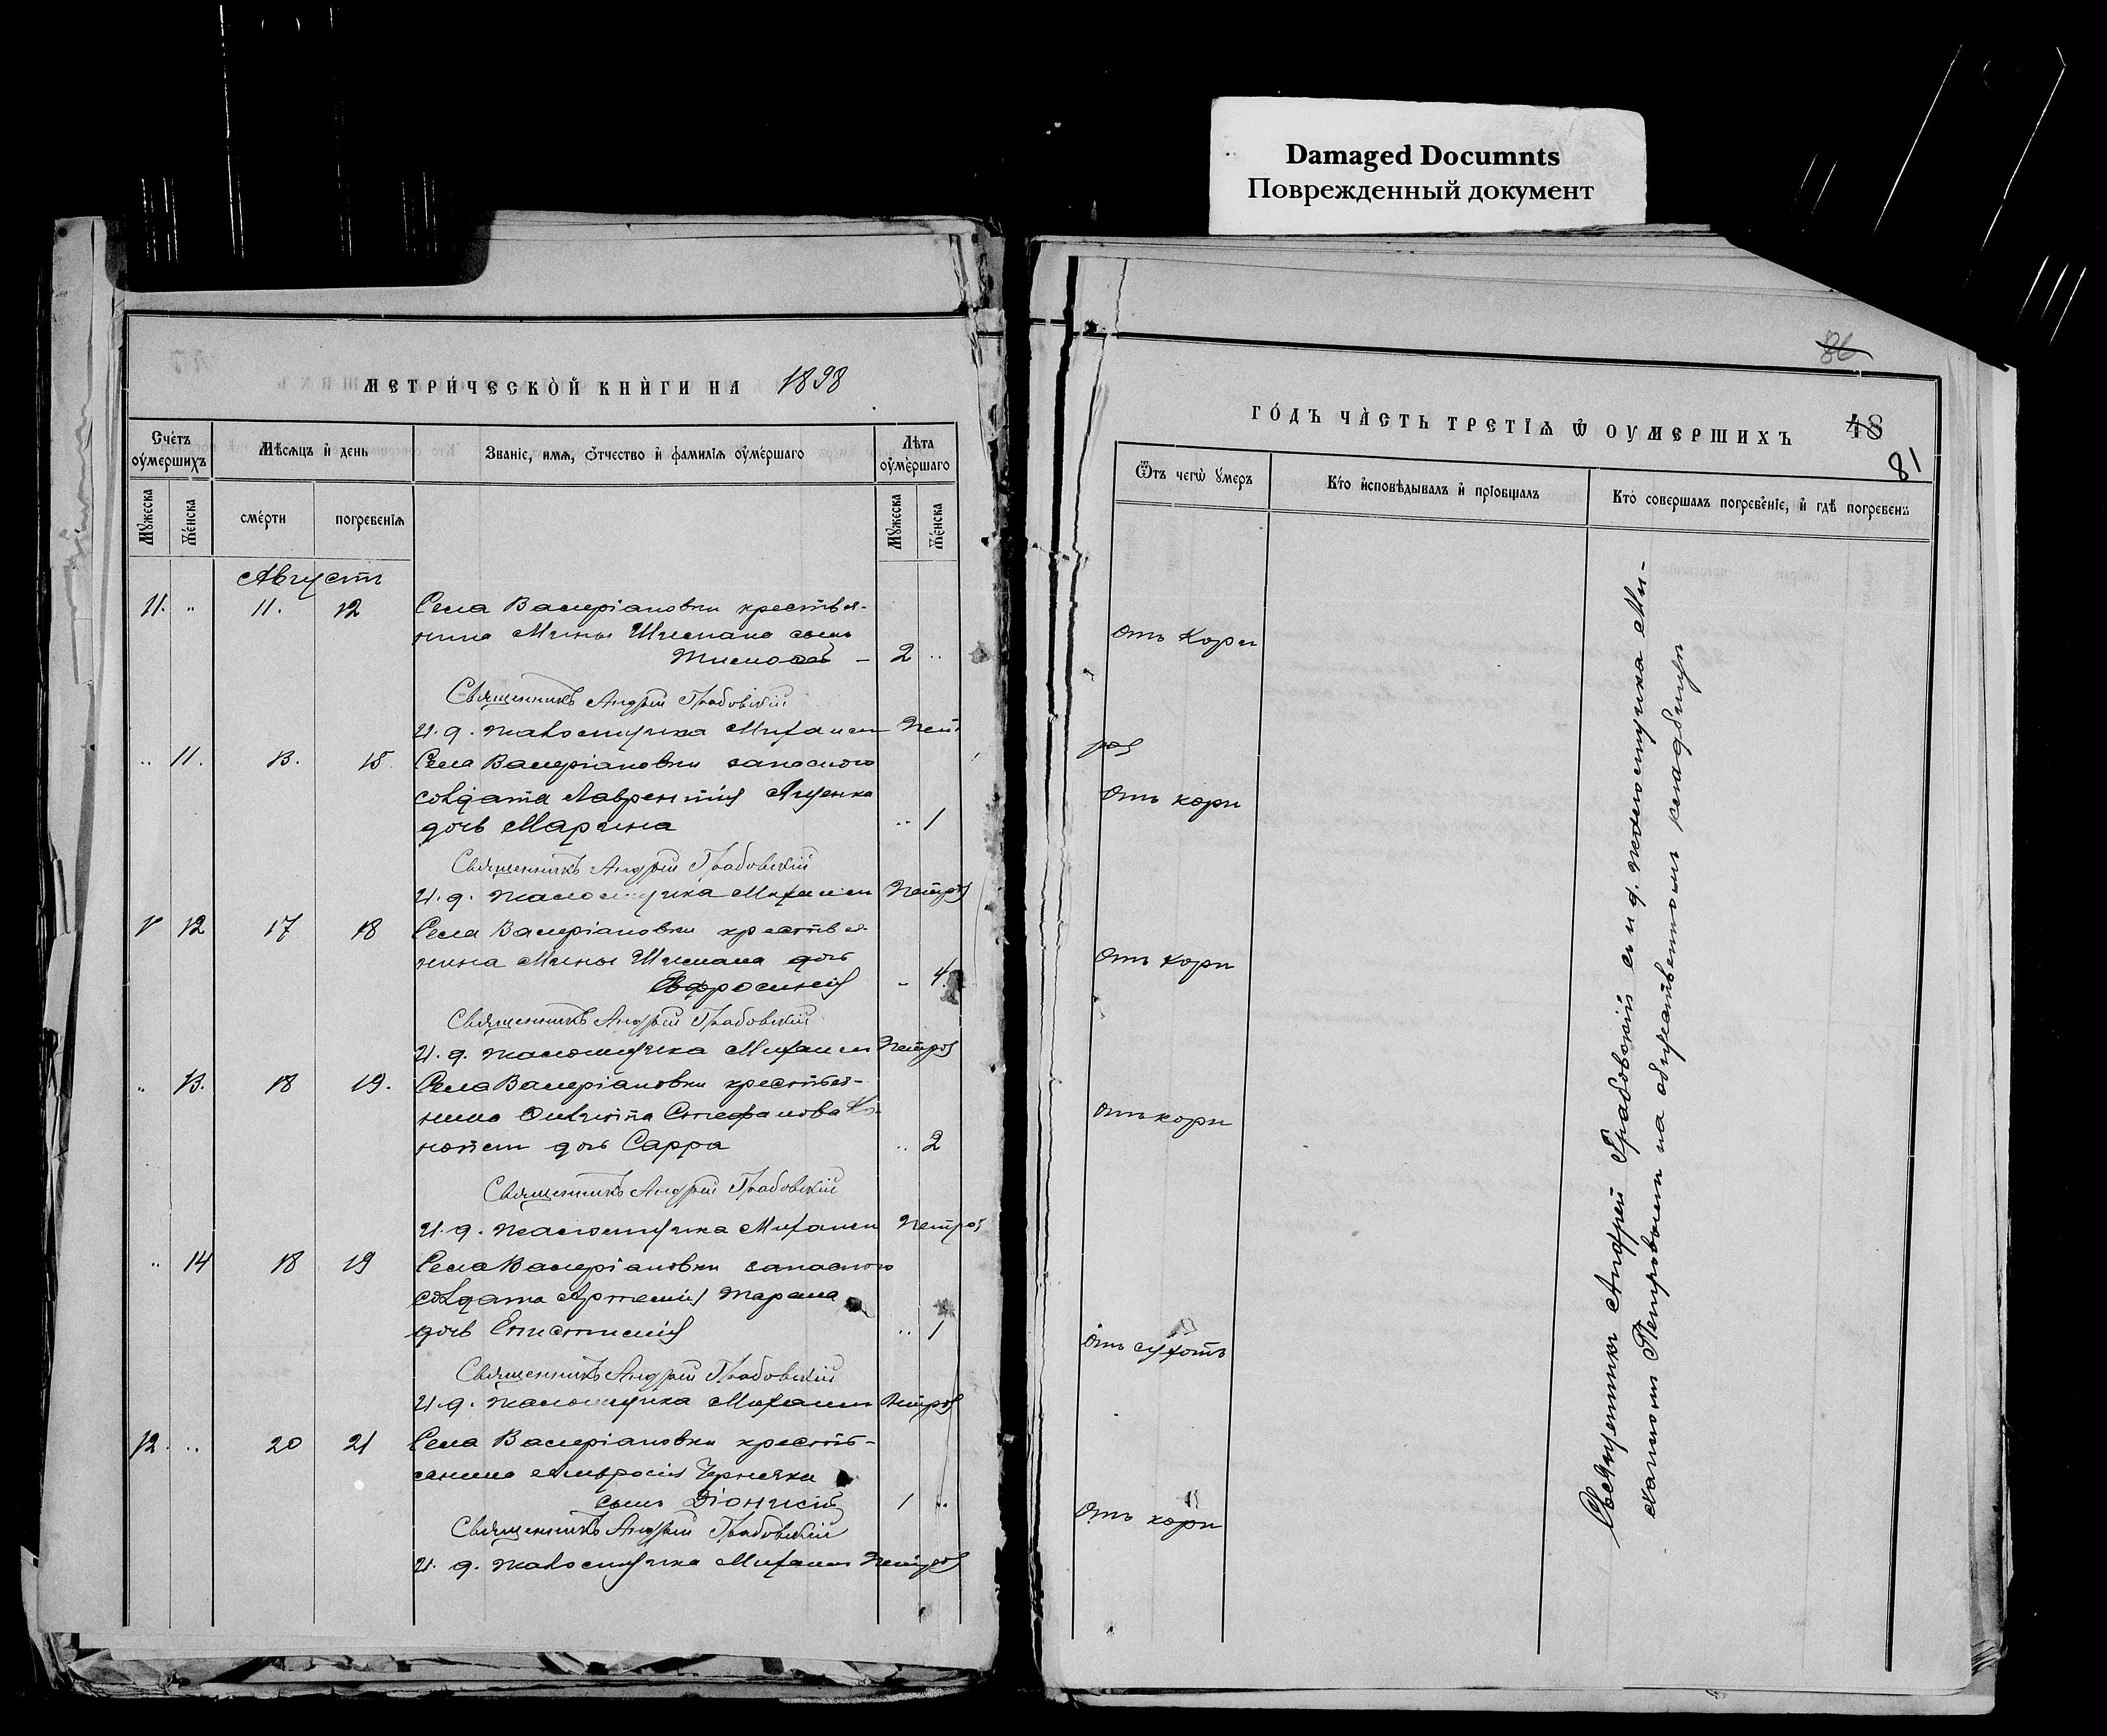 Damaged Documnts
Поврежденный документ
МЕТРИ́ЧЕСКОЙ КНИ́ГИ НА 1898
Сче́тъ оу҆ме́ршихъ
Мѣ́сѧцъ и҆ день
Зва́нїе, и҆́мѧ, ѻ҆́тчество и҆ фами́лїѧ оу҆ме́ршаго
Лѣ́та оу҆ме́ршаго
Мꙋ́жеска
Же́нска
сме́рти
погребе́нїѧ
Мꙋ́жеска
Же́нска
Августъ
11. " 11. 12 Села Валеріановки крестья-
нина Мины Шпе сынъ
Тимофей – 2 "
Священникъ Андрей Грабовскій
И. д. псаломщика Михаилъ Пет
" 11. 13. 15 Села Валеріановки запасного
солдата Лаврентія Яценка
дочь Марина " 1
Священникъ Андрей Грабовскій
И. д. псаломщика Михаилъ Петровъ
" 12 17 18 Села Валеріановки крестья-
нина Мины дочь
Евфросинія - 4.
Священникъ Андрей Грабовскій
И. д. псаломщика Михаилъ Петровъ
" 13. 18 19. Села Валеріановки крестья-
нина Стефанова
дочь Сарра " 2
Священникъ Андрей Грабовскій
И. д. псаломщика Михаилъ Петровъ
" 14 18 19 Села Валеріановки запасного
солдата Артемія Тарана
дочь Епистимія " 1
Священникъ Андрей Грабовскій
И. д. псаломщика Михаилъ Петровъ
12. " 20 21 Села Валеріановки кресть-
янина Амвросія Черняка
сынъ Діонисій 1 "
Священникъ Андрей Грабовскій
И. д. псаломщика Михаилъ Петровъ
86
ГО́ДЪ ЧА́СТЬ ТРЕТЇѦ Ѿ ОУМЕРШИХЪ 48
81
Ѿтъ чегѡ̀ ᲂу́меръ
Кто̀ и҆сповѣ́дывалъ и҆ прїобща́лъ
Кто̀ соверша́лъ погребе́нїе, и҆ гдѣ̀ погребе́нъ
Отъ кори
ровъ
Отъ кори
Отъ кори
Отъ кори
Отъ сухотъ
Отъ кори
Священникъ Андрей Грабовскій съ и д. псаломщика Ми-
хаиломъ Петровымъ на общественномъ кладбищѣ